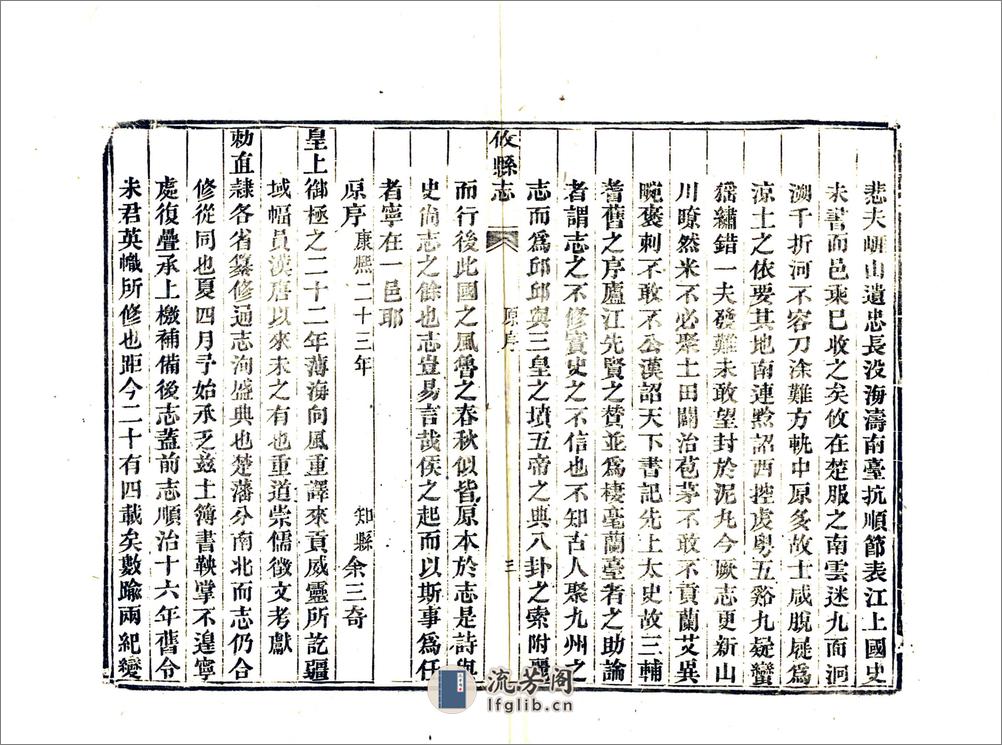 悲夫峴山遺忠長没海濤南臺抗順節表江上國史
未書而邑乘已收之矣攸在楚服之南雲迷九面泂
溯千折河不容刀涂難方軌中原多故士咸脫屣爲
涼土之依要其地南連黔詔西控虔粤五谿九疑蠻
猺繡錯一夫發難未敢望封於泥丸今厥志更新山
川瞭然米不必聚土田闢治苞茅不敢不貢蘭艾異
畹褒刺不敢不公漢詔天下書記先上太史故三輔
耆舊之序廬江先賢之贊並爲棲毫蘭臺者之助論
者謂志之不修實史之不信也不知古人聚九州之
志而爲邱邱與三皇之墳五帝之典八卦之索附麗
攸縣志
原序
三
而行後此國之風魯之春秋似皆原本於志是詩與
史尙志之餘也志豈易言哉侯之起而以斯事爲任
者寧在一邑耶
原序 康熙二十三年 知縣 余三奇
皇上御極之二十二年薄海向風重譯來貢威靈所訖疆
域幅員漢唐以來未之有也重道崇儒徵文考獻
勅直隸各省纂修通志洵盛典也楚藩分南北而志仍合
修從同也夏四月予始承乏兹土簿書鞅掌不遑寧
處復疊承上檄補備後志蓋前志順治十六年舊令
朱君英幟所修也距今二十有四載矣數踰兩紀變
流芳阁
lfglib.cn